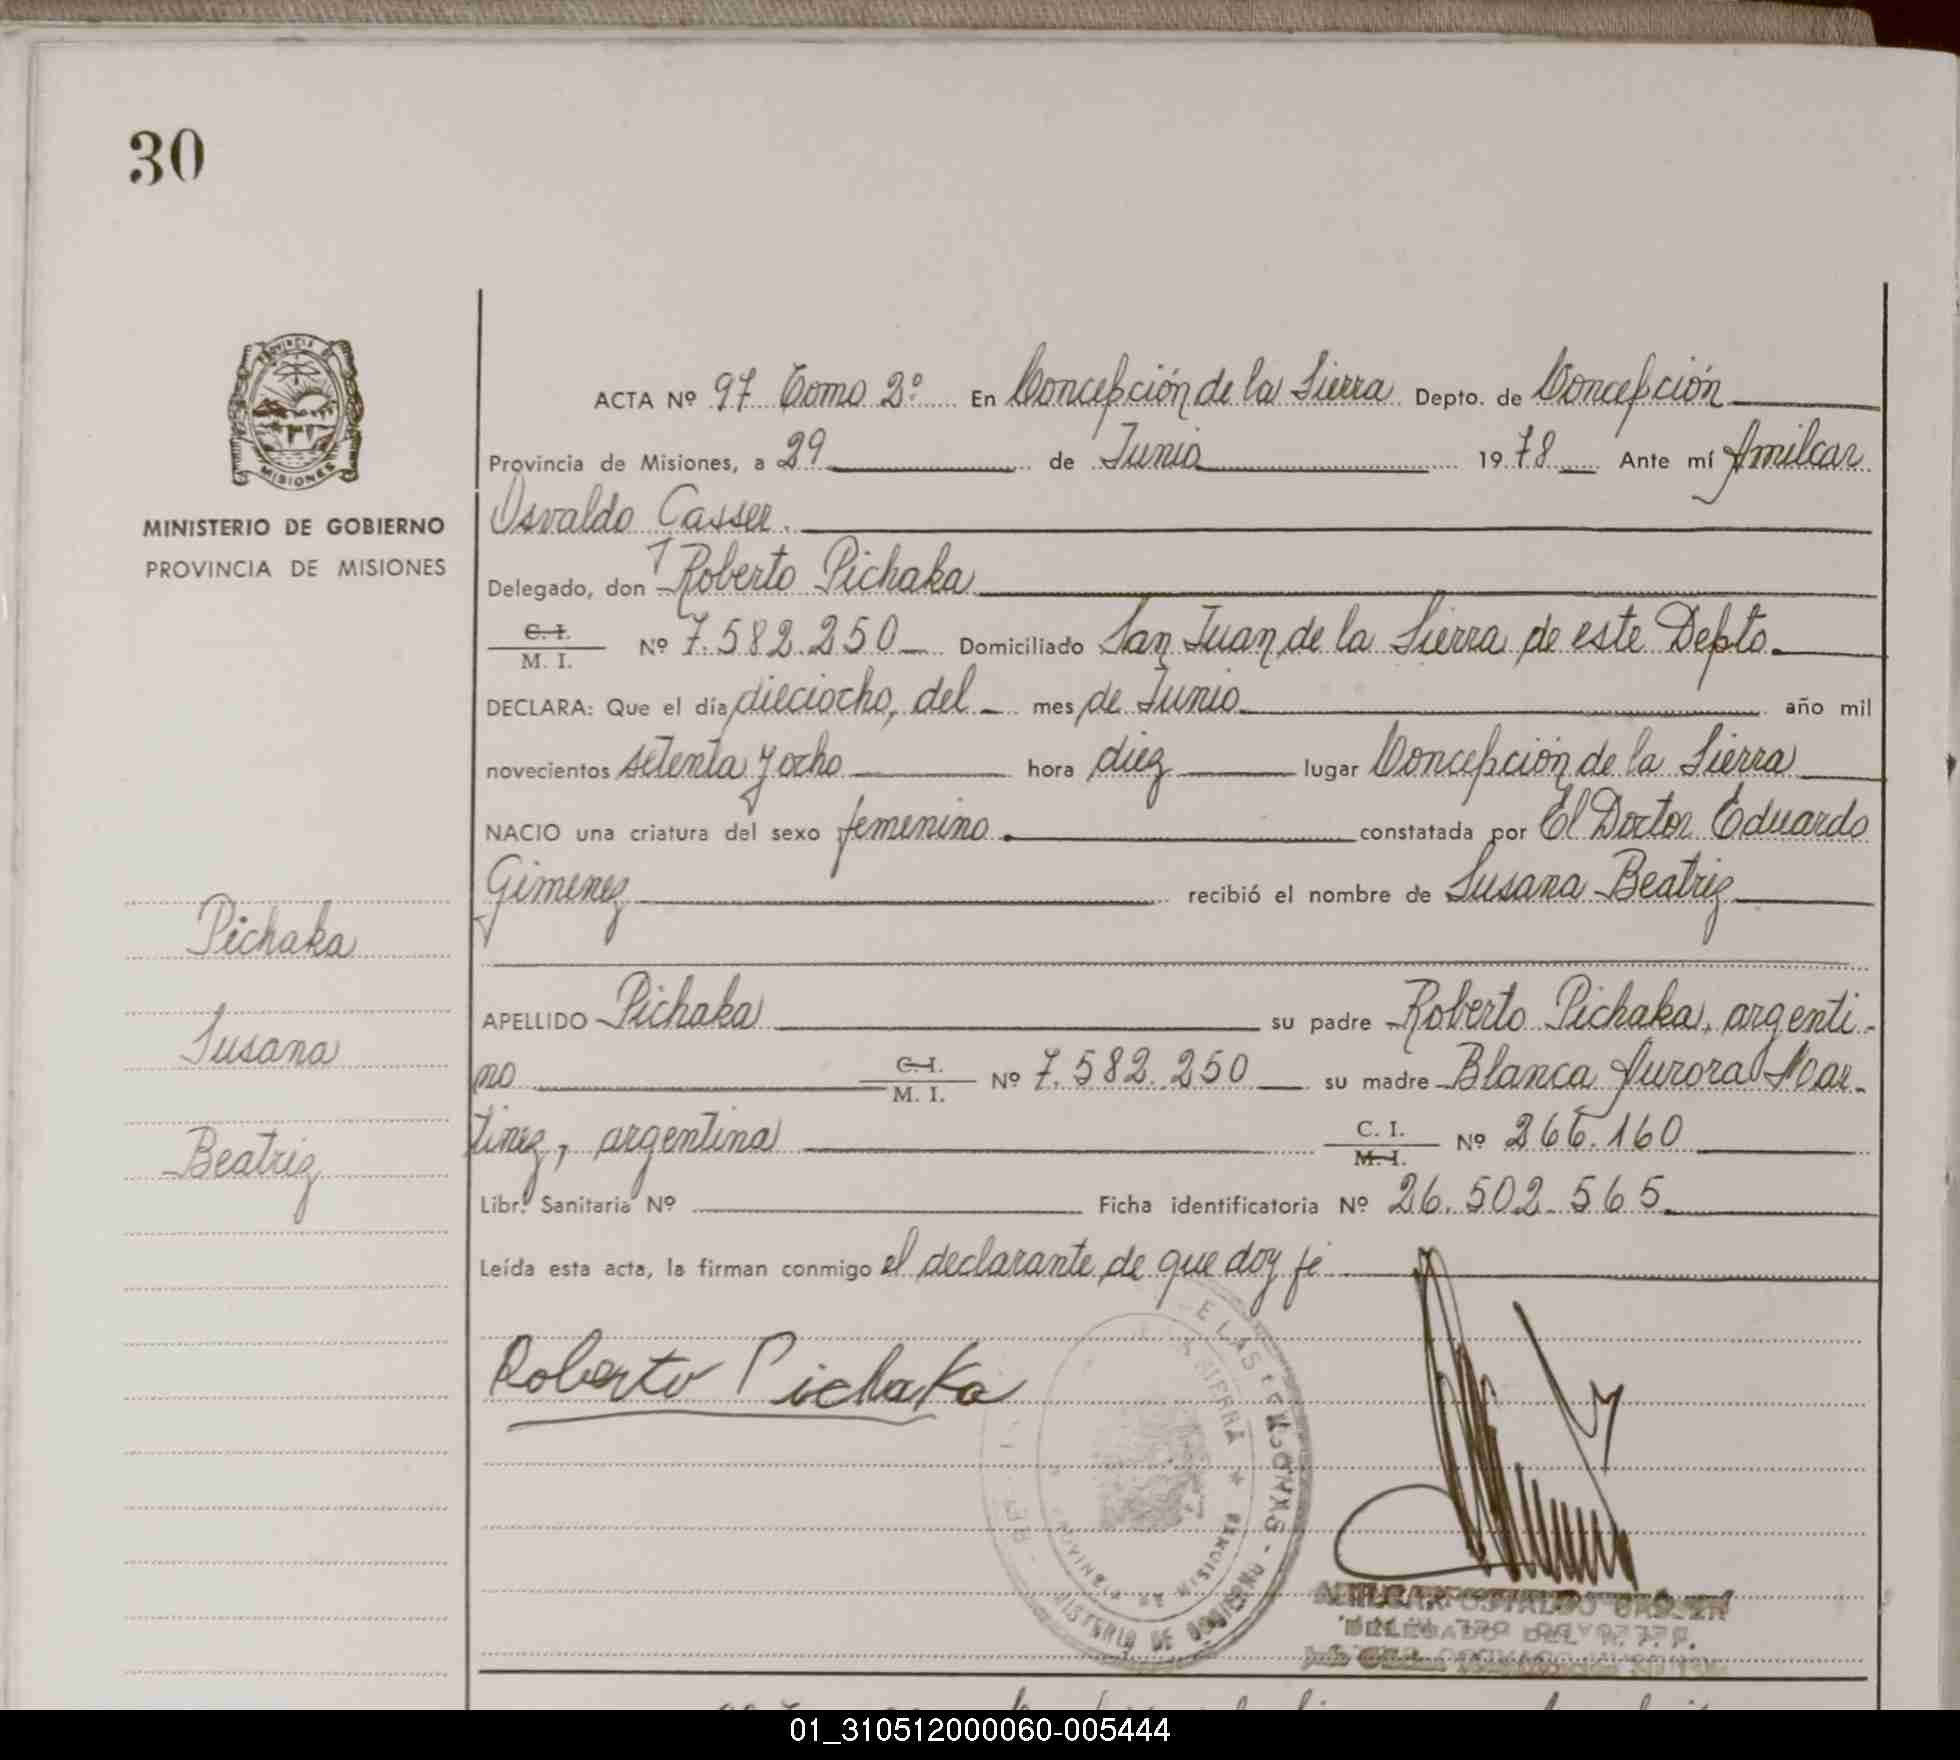 30
PROVINCIA DE
MISIONES
MINISTERIO DE GOBIERNO
PROVINCIA DE MISIONES
Pichaka
Susana
Beatriz
ACTA Nº 97 Tomo 2º En Concepción de la Sierra Depto. de Concepción
Provincia de Misiones, a 29 de Junio 1978 Ante mí Amilcar
Osvaldo Casser
Delegado, don Roberto Pichaka
C. I.
M. I. Nº 7.582.250 Domiciliado San Juan de la Sierra de este Depto.
DECLARA: Que el día dieciocho, del mes de Junio año mil
novecientos setenta y ocho hora diez lugar Concepción de la Sierra
NACIO una criatura del sexo femenino constatada por El Doctor Eduardo
Gimenez recibió el nombre de Susana Beatriz
APELLIDO Pichaka su padre Roberto Pichaka, argenti-
no C. I.
M. I. Nº 7.582.250 su madre Blanca Aurora Mar-
tinez, argentina C. I.
M. I. Nº 266.160
Libr. Sanitaria Nº Ficha identificatoria Nº 26.502.565
Leída esta acta, la firman conmigo el declarante de que doy fé
Roberto Pichaka
01_310512000060-005444